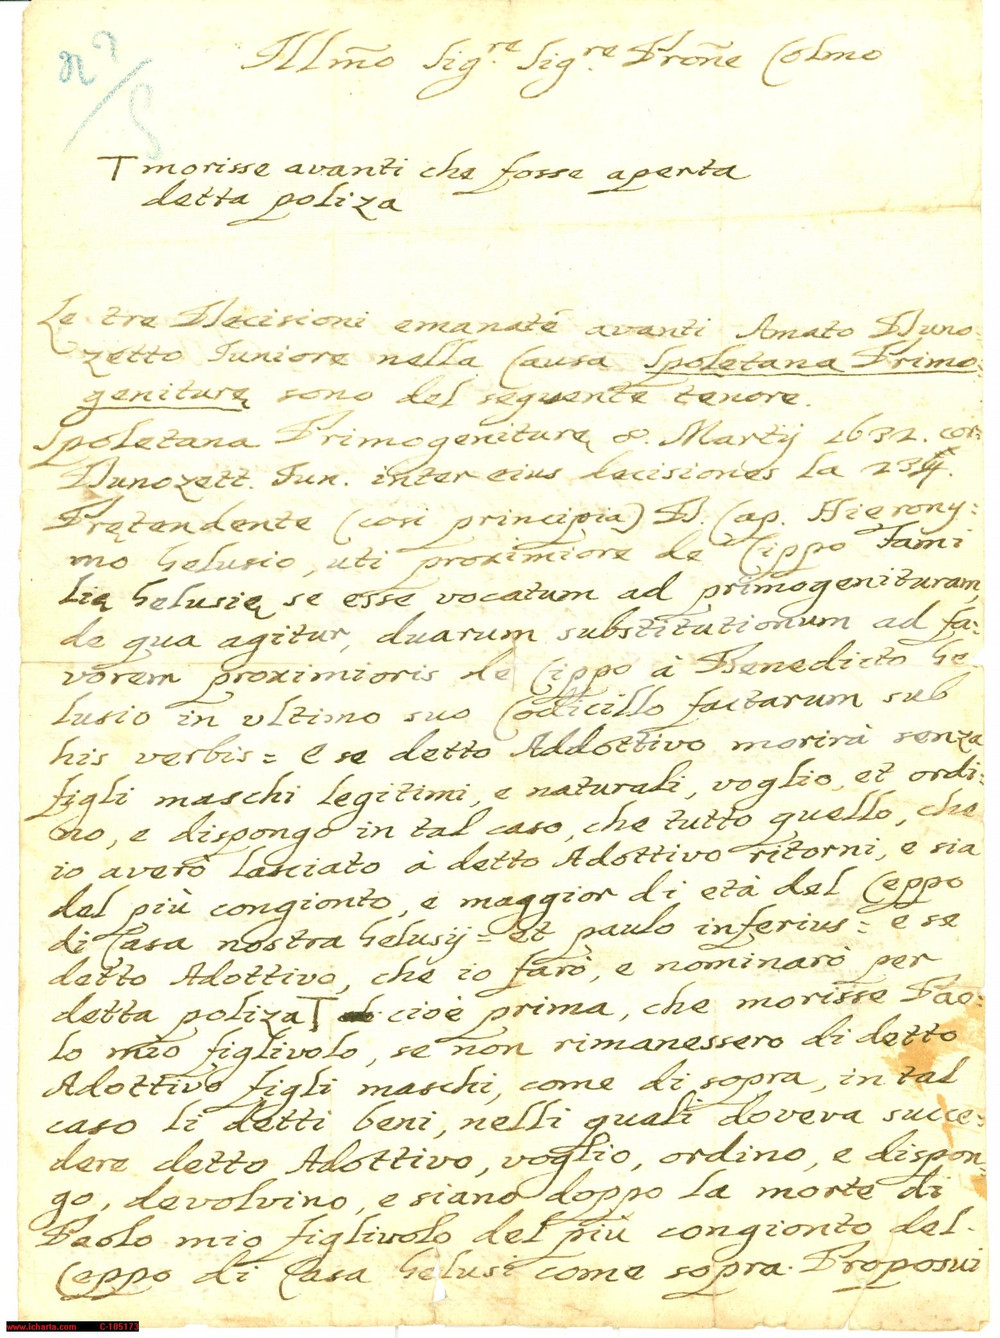 Illmo Sig.re Sig.re Prone Colmo
n° 5
T morisse avanti che fosse aperta
detta poliza
Le tre Decisioni emanate avanti Amato Duno-
zetto Juniore nella Causa Spoletana Primo-
geniturę sono del seguente tenore.
Spoletana Primogeniturę 8. Martij 1632. cor:
Dunozett. Jun. inter eius decisiones la
Prętendente (cosi principia) D. Cap. Hierony-
mo Gelusio, uti proximiore de Cippo Fami
lię Gelusię se esse vocatum ad primogenituram,
de qua agitur, duarum substitutionum ad fa-
vorem proximioris de Cippo à Benedicto Ge
lusio in ultimo suo Codicillo factarum sub
his verbis = E se detto Addottivo morirà senza
figli maschi legitimi, e naturali, voglio, et ordi:
no, e dispongo in tal caso, che tutto quello, che
io averò lasciato à detto Adottivo ritorni, e sia
del più congionto, e maggior di età del Ceppo
di Casa nostra Gelusij = et paulo inferius = e se
detto Adottivo, che io farò, e nominarò per
detta poliza T cioè prima, che morisse Pao-
lo mio figlivolo, se non rimanessero di detto
Adottivo figli maschi, come di sopra, in tal
caso li detti beni, nelli quali doveva succe-
dere detto Adottivo, voglio, ordino, e dispon-
go, devolvino, e siano doppo la morte di
Paolo mio figlivolo del più congionto del
Ceppo di Casa Gelusi come sopra. Proposui
www.icharta.com C-105173